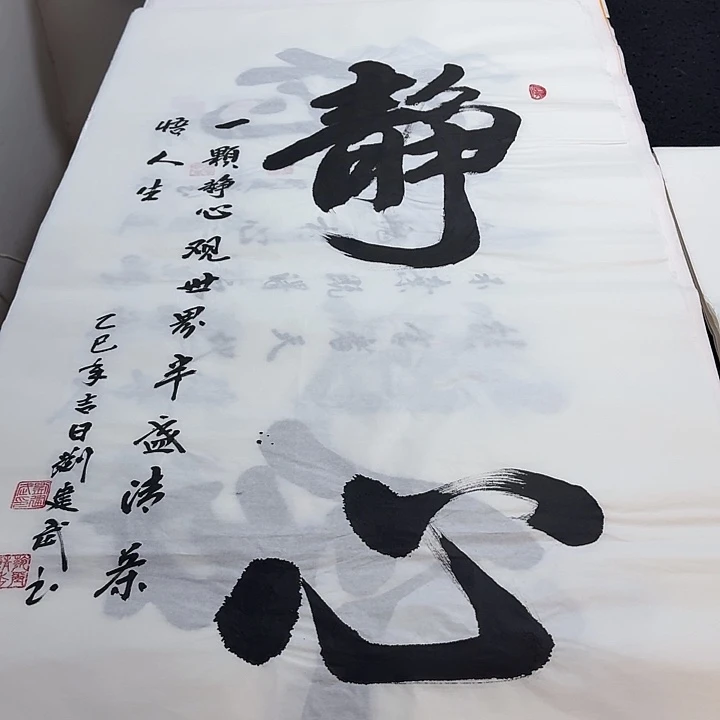 静心
一顆静心观世界半盏清茶
悟人生
乙巳年吉日劉建武书